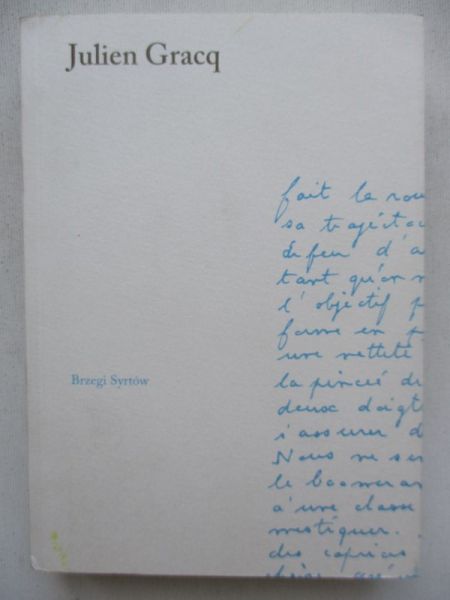 Julien Gracq
fait le rou
sa trajecto
de feu d'a
tant qu'on n
l'objectif p
forme en p
une netteté
Brzegi Syrtów
la pincée de
deux doigts
s'assurer d
Nous ne ser
le boomeran
à une classe
mestiquer.
des caprices